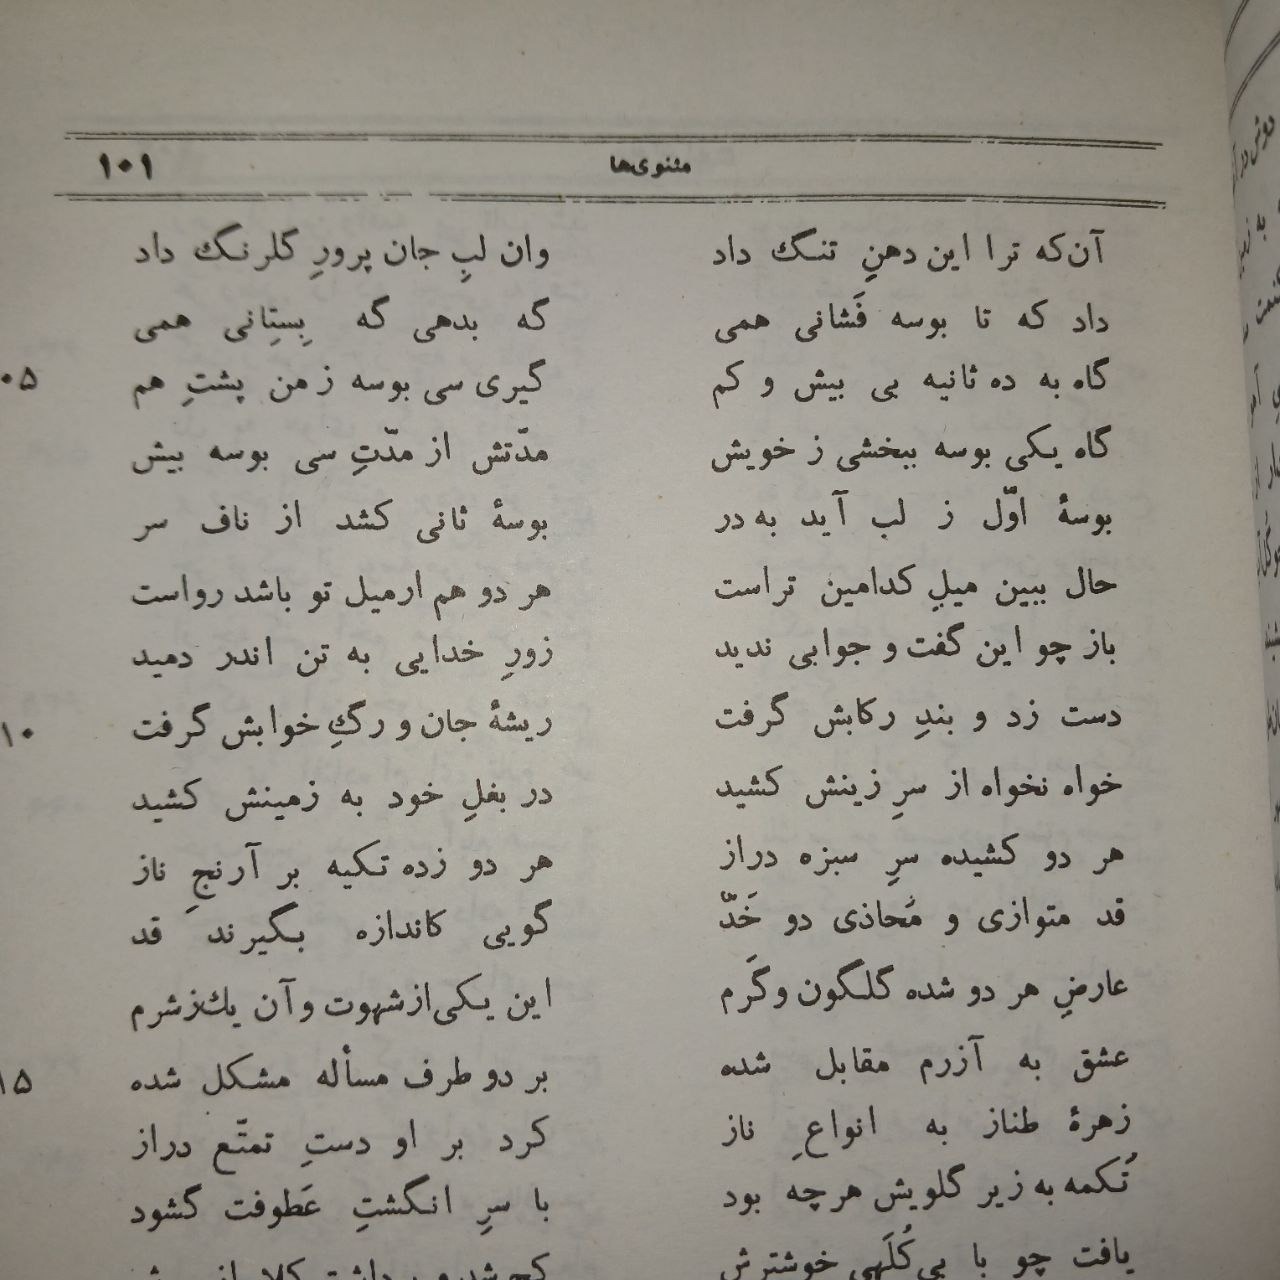 مثنوی‌ها ۱۰۱
آن‌که ترا این دهنِ تنگ داد وان لبِ جان پرورِ گلرنگ داد
داد که تا بوسه فَشانی همی گه بدهی گه بِستِانی همی
گاه به ده ثانیه بی بیش و کم گیری سی بوسه ز من پشتِ هم ۰۵
گاه یکی بوسه ببخشی ز خویش مدّتش از مدّتِ سی بوسه بیش
بوسهٔ اوّل ز لب آید به در بوسهٔ ثانی کشد از ناف سر
حال ببین میلِ کدامین تراست هر دو هم ارمیل تو باشد رواست
باز چو این گفت و جوابی ندید زورِ خدایی به تن اندر دمید
دست زد و بندِ رکابش گرفت ریشهٔ جان و رگِ خوابش گرفت ۱۰
خواه نخواه از سرِ زینش کشید در بغلِ خود به زمینش کشید
هر دو کشیده سرِ سبزه دراز هر دو زده تکیه بر آرنجِ ناز
قد متوازی و مُحاذی دو خَدّ گویی کاندازه بگیرند قد
عارضِ هر دو شده گلگون و گَرم این یکی از شهوت و آن یك ز شرم
عشق به آزرم مقابل شده بر دو طرف مسأله مشکل شده ۱۵
زهرهٔ طناز به انواعِ ناز کرد بر او دستِ تمتّع دراز
تُکمه به زیر گلویش هر چه بود با سرِ انگشتِ عَطوفت گشود
یافت چو با بی‌کُلَهی خوشترش